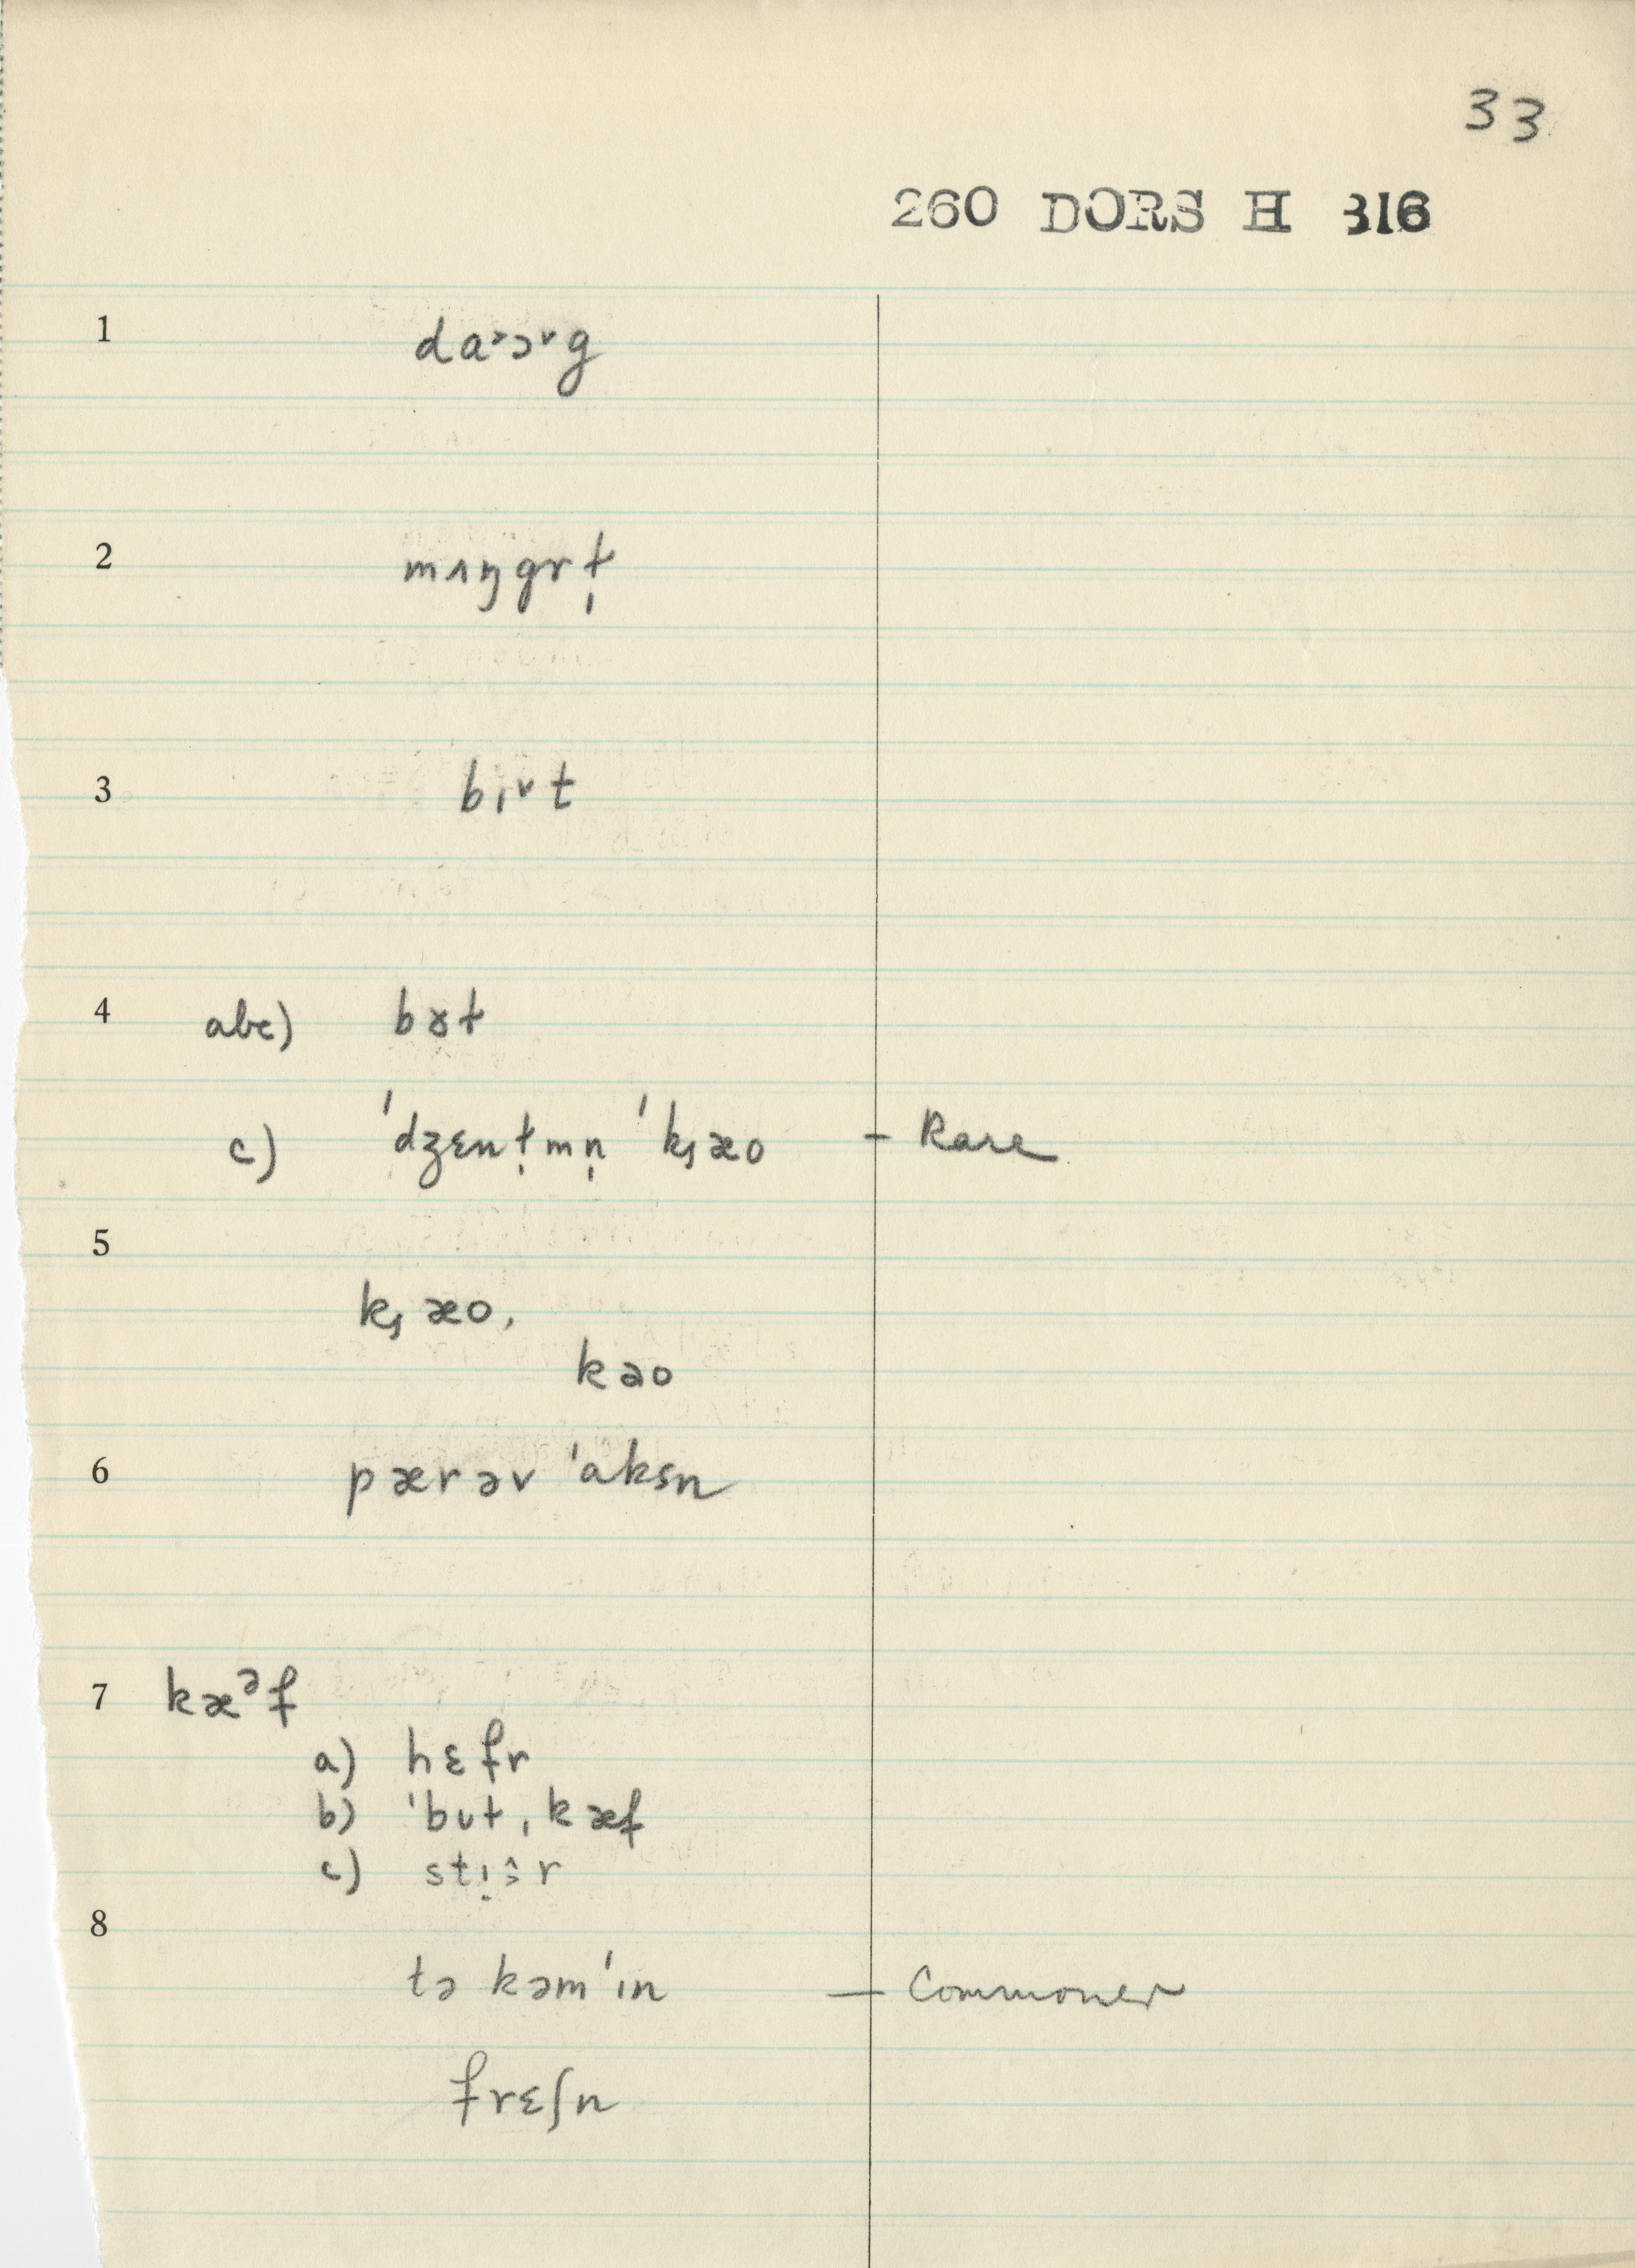 33
260 DORS H 316
1 da˃ɔ˅g
2 mʌŋgrɫ̩
3 bɪ˅t
4 abc) bɤɫ
c) 'dʒɛnɫ̩mn̩ 'kᶊæo – Rare
5
kᶊæo,
kao
6 pærəv 'aksn
7 kæᵊf
a) hɛfr
b) 'bʊɫˌkæf
c) stɪ̣ə̂r
8
tə kəm'ɪn – Commoner
frɛʃn